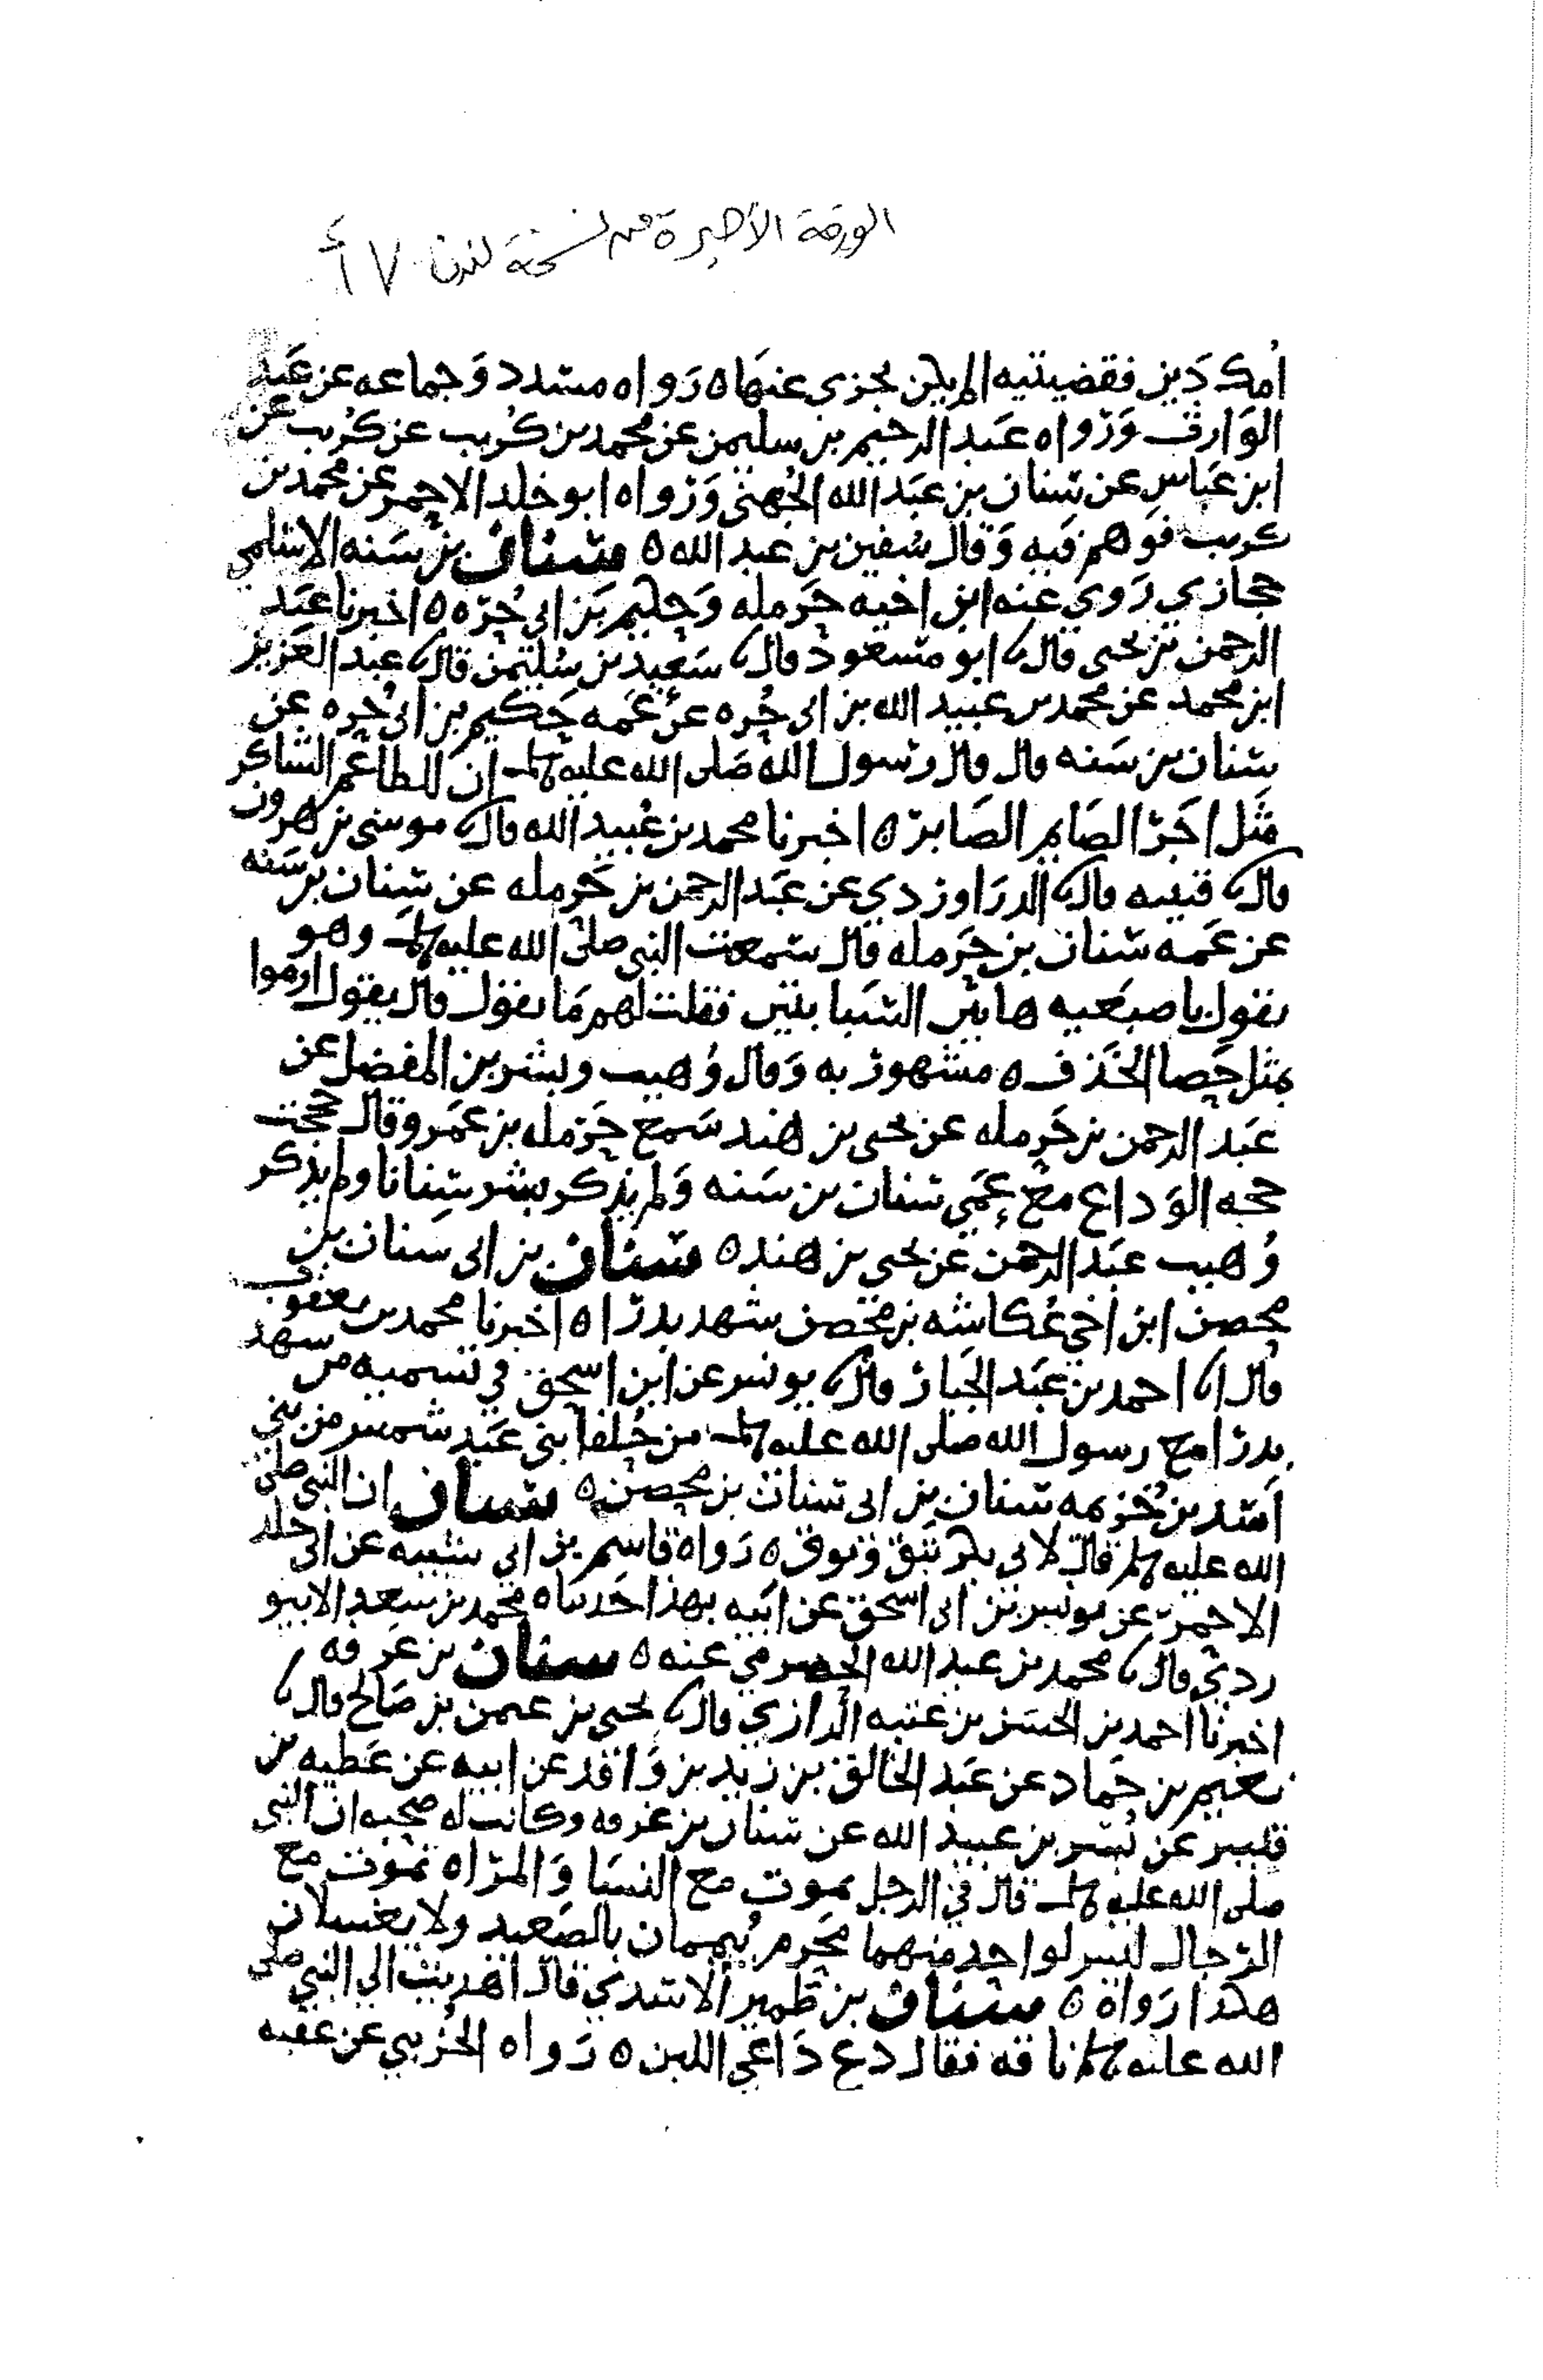 الورقة الأخيرة من نسخة لندن ٦٧أ
امك دَين فقضيتيه الم يكن يجزي عنها ه رَواه مسدد وَجماعه عن عَبد
الوَارث وَرَواه عَبد الرحيم بن سليمن عن محمد بن كُريب عن كُريب عن
ابن عَباس عن سنان بن عَبَد الله الجُهني وَرَواه ابو خلد الاحمر عن محمد بن
كريب فوَهم فيه وَقال سُفين بن عبد الله ه سنان بن سَنه الاسلمي
حجازي رَوي عنه ابن اخيه حَرمله وَحكيم بن ابي حُرّه ه اخبرنا عبَد
الرحمن بن يحيى قال ابو مسعود قال سَعيد بن سُليمن قال عبد العَزيز
ابن محمد عن محمد بن عبيد الله بن ابي حُره عن عَمه حَكيم بن ابي حُره عن
سنان بن سَنه قال قال رسول الله صَلى الله عليه وسلم ان للطاعم الشاكر
مثَل اجَر الصَايم الصَابر ه اخبرنا محمد بن عُبيد الله قال موسى بن هرون
قال قتيبه قال الدرَاوردي عن عَبَد الرحمن بن حَرمله عن سنان بن سَنه
عن عَمه سنان بن حَرمله قال سمعت النبي صلى الله عليه وسلم وهو
يقول باصبَعيه هاتين السَبابتين فقلت لهم مَا يقول قال يقول ارموا
بمثل حَصا الخَذف ه مشهور به وَقال وُهيب وبشر بن المفضل عن
عَبد الرحمن بن حَرمله عن يحيى بن هند سَمع حَرمله بن عَمرو قال حججت
حجه الوَداع معَ عَمي سنان بن سَنه وَلم يذكر بشر سنانا ولم يذكر
وُهيب عبَد الرحمن عن يحيى بن هند ه سنان بن ابي سنان بن
محصن ابن اخي عُكاشه بن محصن شهد بدرًا ه اخبرنا محمد بن يعقوب
قال احمد بن عَبَد الجَبار قال يونس عن ابن اسحق في تسميه من شهد
بدرًا مع رسول الله صلى الله عليه وسلم من حُلفا بني عَبَد شمس من بني
اَسد بن خُزيمه سنان بن ابي سنان بن محصن ه سنان ان النبي صلى
الله عليه وسلم قال لابي بكر تنَق وَتوق ه رَواه قاسم بن ابي شيبه عن ابي خلد
الاحمر عن يونس بن ابي اسحق عن ابَيه بهذا حَدثناه محمد بن سعَد الابيو
ردي قال محمد بن عبد الله الحضرمي عنه ه سنان بن غرفه
اخبرنا احمد بن الحسَن بن عتبه الرازي قال يحيى بن عثمن بن صَالح قال
نعيم بن حمَاد عن عَبد الخالق بن زيد بن وَاقد عن ابيه عن عَطيه بن
قليس عن بُسر بن عبيد الله عن سنان بن غرفه وكانت له صحبه ان النبي
صلى الله عليه وسلم قال في الرجل يموت مع النسَا وَالمراه تموت مع
الرّجال ليس لواحد منهما محَرم يُيممان بالصَعيد ولا يغسلان
هكذا رَواه ه سنان بن ظهير الاسدي قال اهديت الي النبي صلى
الله عليه وسلم ناقه فقال دع دَاعي اللبن ه رَواه الخُريبي عن عقبه